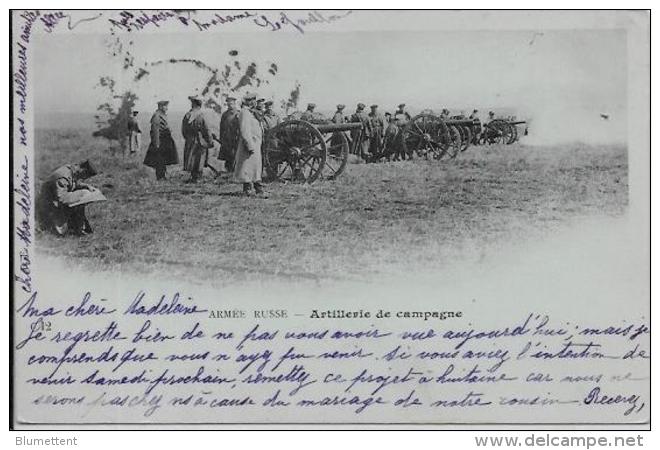 chère Madeleine nos meilleures amitiés
Madame
Ma chère Madeleine
ARMÉE RUSSE — Artillerie de campagne
12
Je regrette bien de ne pas vous avoir vue aujourd'hui; mais je
comprends que vous n'ayez pu venir. Si vous aviez l'intention de
venir samedi prochain, remettez ce projet à huitaine car nous ne
serons pas chez nous à cause du mariage de notre cousin. Recevez,
Blumettent
www.delcampe.net